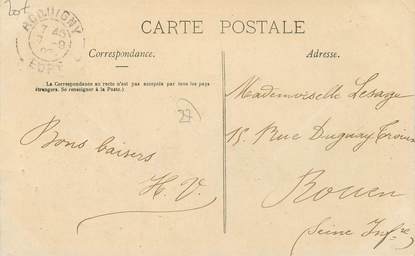 CARTE POSTALE
Correspondance.
Adresse.
La Correspondance au recto n'est pas acceptée par tous les pays
étrangers. Se renseigner à la Poste.)
Bons baisers
H. V.
27
Mademoiselle Lesage
15. Rue Duguay Trouin
Rouen
Seine Infre
EURE